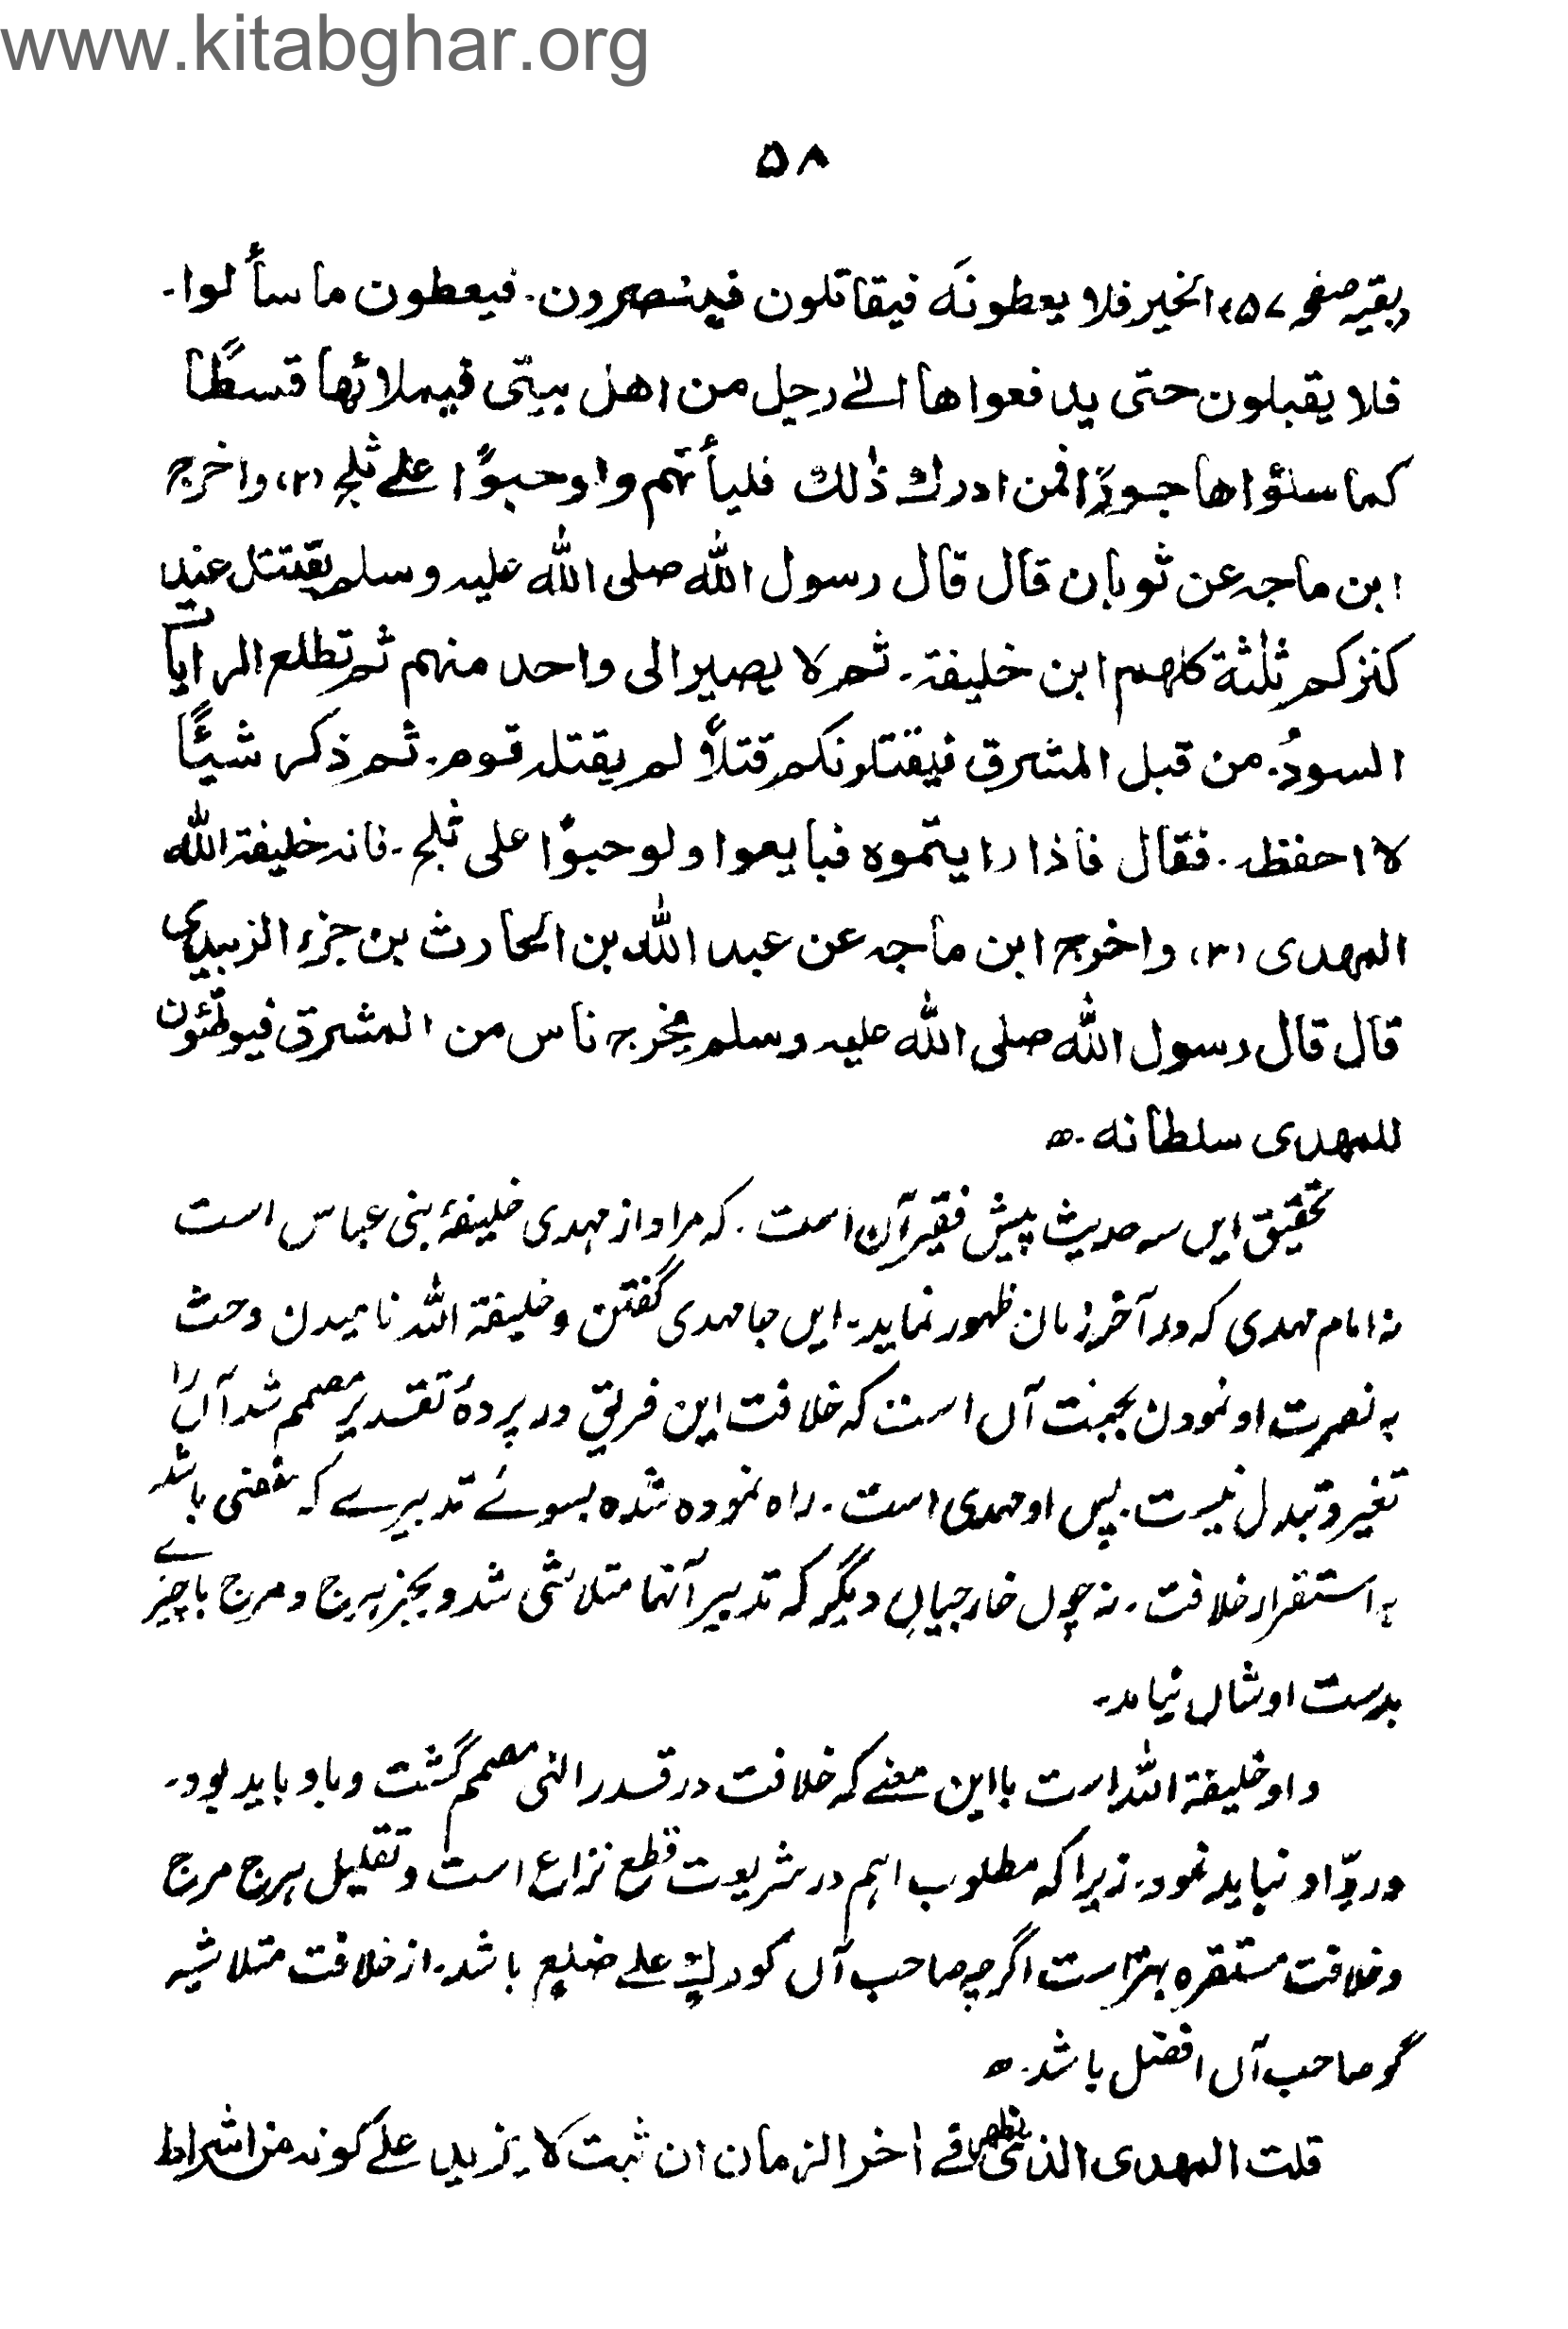 www.kitabghar.org
۵۸
(بقیہ صفحہ ۵۷) الخیر فلا یعطونہ فیقاتلون فینصرون۔ فیعطون ما سألوا۔
فلا یقبلون حتی یدفعواھا الے رجل من اھل بیتی فیملائھا قسطًا
کما سلؤاھا جورًا فمن ادرك ذٰلك فلیأتھم واوحبوًا علے ثلج (۲) واخرج
ابن ماجہ عن ثوبان قال قال رسول اللہ صلی اللہ علیہ وسلم یقتتل عند
کنزکم ثلٰثة کلھم ابن خلیفة۔ ثم لا یصیر الی واحد منہم ثم تطلع الرایات
السودُ۔ من قبل المشرق فیقتلونکم قتلاً لم یقتلہ قوم۔ ثم ذکر شیئًا
لا احفظہ۔ فقال فاذا رایتموہ فبایعوا ولو حبوًا علی ثلج۔ فانہ خلیفة اللہ
المھدی (۳) واخرج ابن ماجہ عن عبد اللہ بن الحارث بن جزء الزبیدی
قال قال رسول اللہ صلی اللہ علیہ وسلم یخرج ناس من المشرق فیوطئون
للمھدی سلطانہ۔ ھ
تحقیق ایں سہ حدیث پیش فقیر آن است۔ کہ مراد از مہدی خلیفۂ بنی عباس است
نہ امام مہدی کہ در آخر زمان ظہور نماید۔ ایں جا مہدی گفتن و خلیفة اللہ نامیدن و حث
بہ نصرت او نمودن بجہت آں است کہ خلافت این فریق در پردۂ تقدیر مصمم شد آں را
تغیر و تبدل نیست۔ پس او مہدی است۔ راہ نمودہ شدہ بسوئے تدبیرے کہ مفضی باشد
بہ استقرار خلافت۔ نہ چوں خارجیاں دیگر کہ تدبیر آنہا متلاشی شد و بجز ہرج و مرج با چیزے
بدست اوشاں نیامد۔
و او خلیفة اللہ است بااین معنے کہ خلافت در قدر الٰہی مصمم گشت و باو باید بود۔
در ردِّ او نباید نمود۔ زیرا کہ مطلوب اہم در شریعت قطع نزاع است و تقلیل ہرج مرج
و خلافت مستقرہ بہتر است اگرچہ صاحب آں کورك علے ضلع باشد۔ از خلافت متلاشیہ
گو صاحب آں افضل باشد۔ ھ
قلت المھدی الذی یظھر فے اٰخر الزمان ان ثبت لا یزید علے کونہ من اشراط